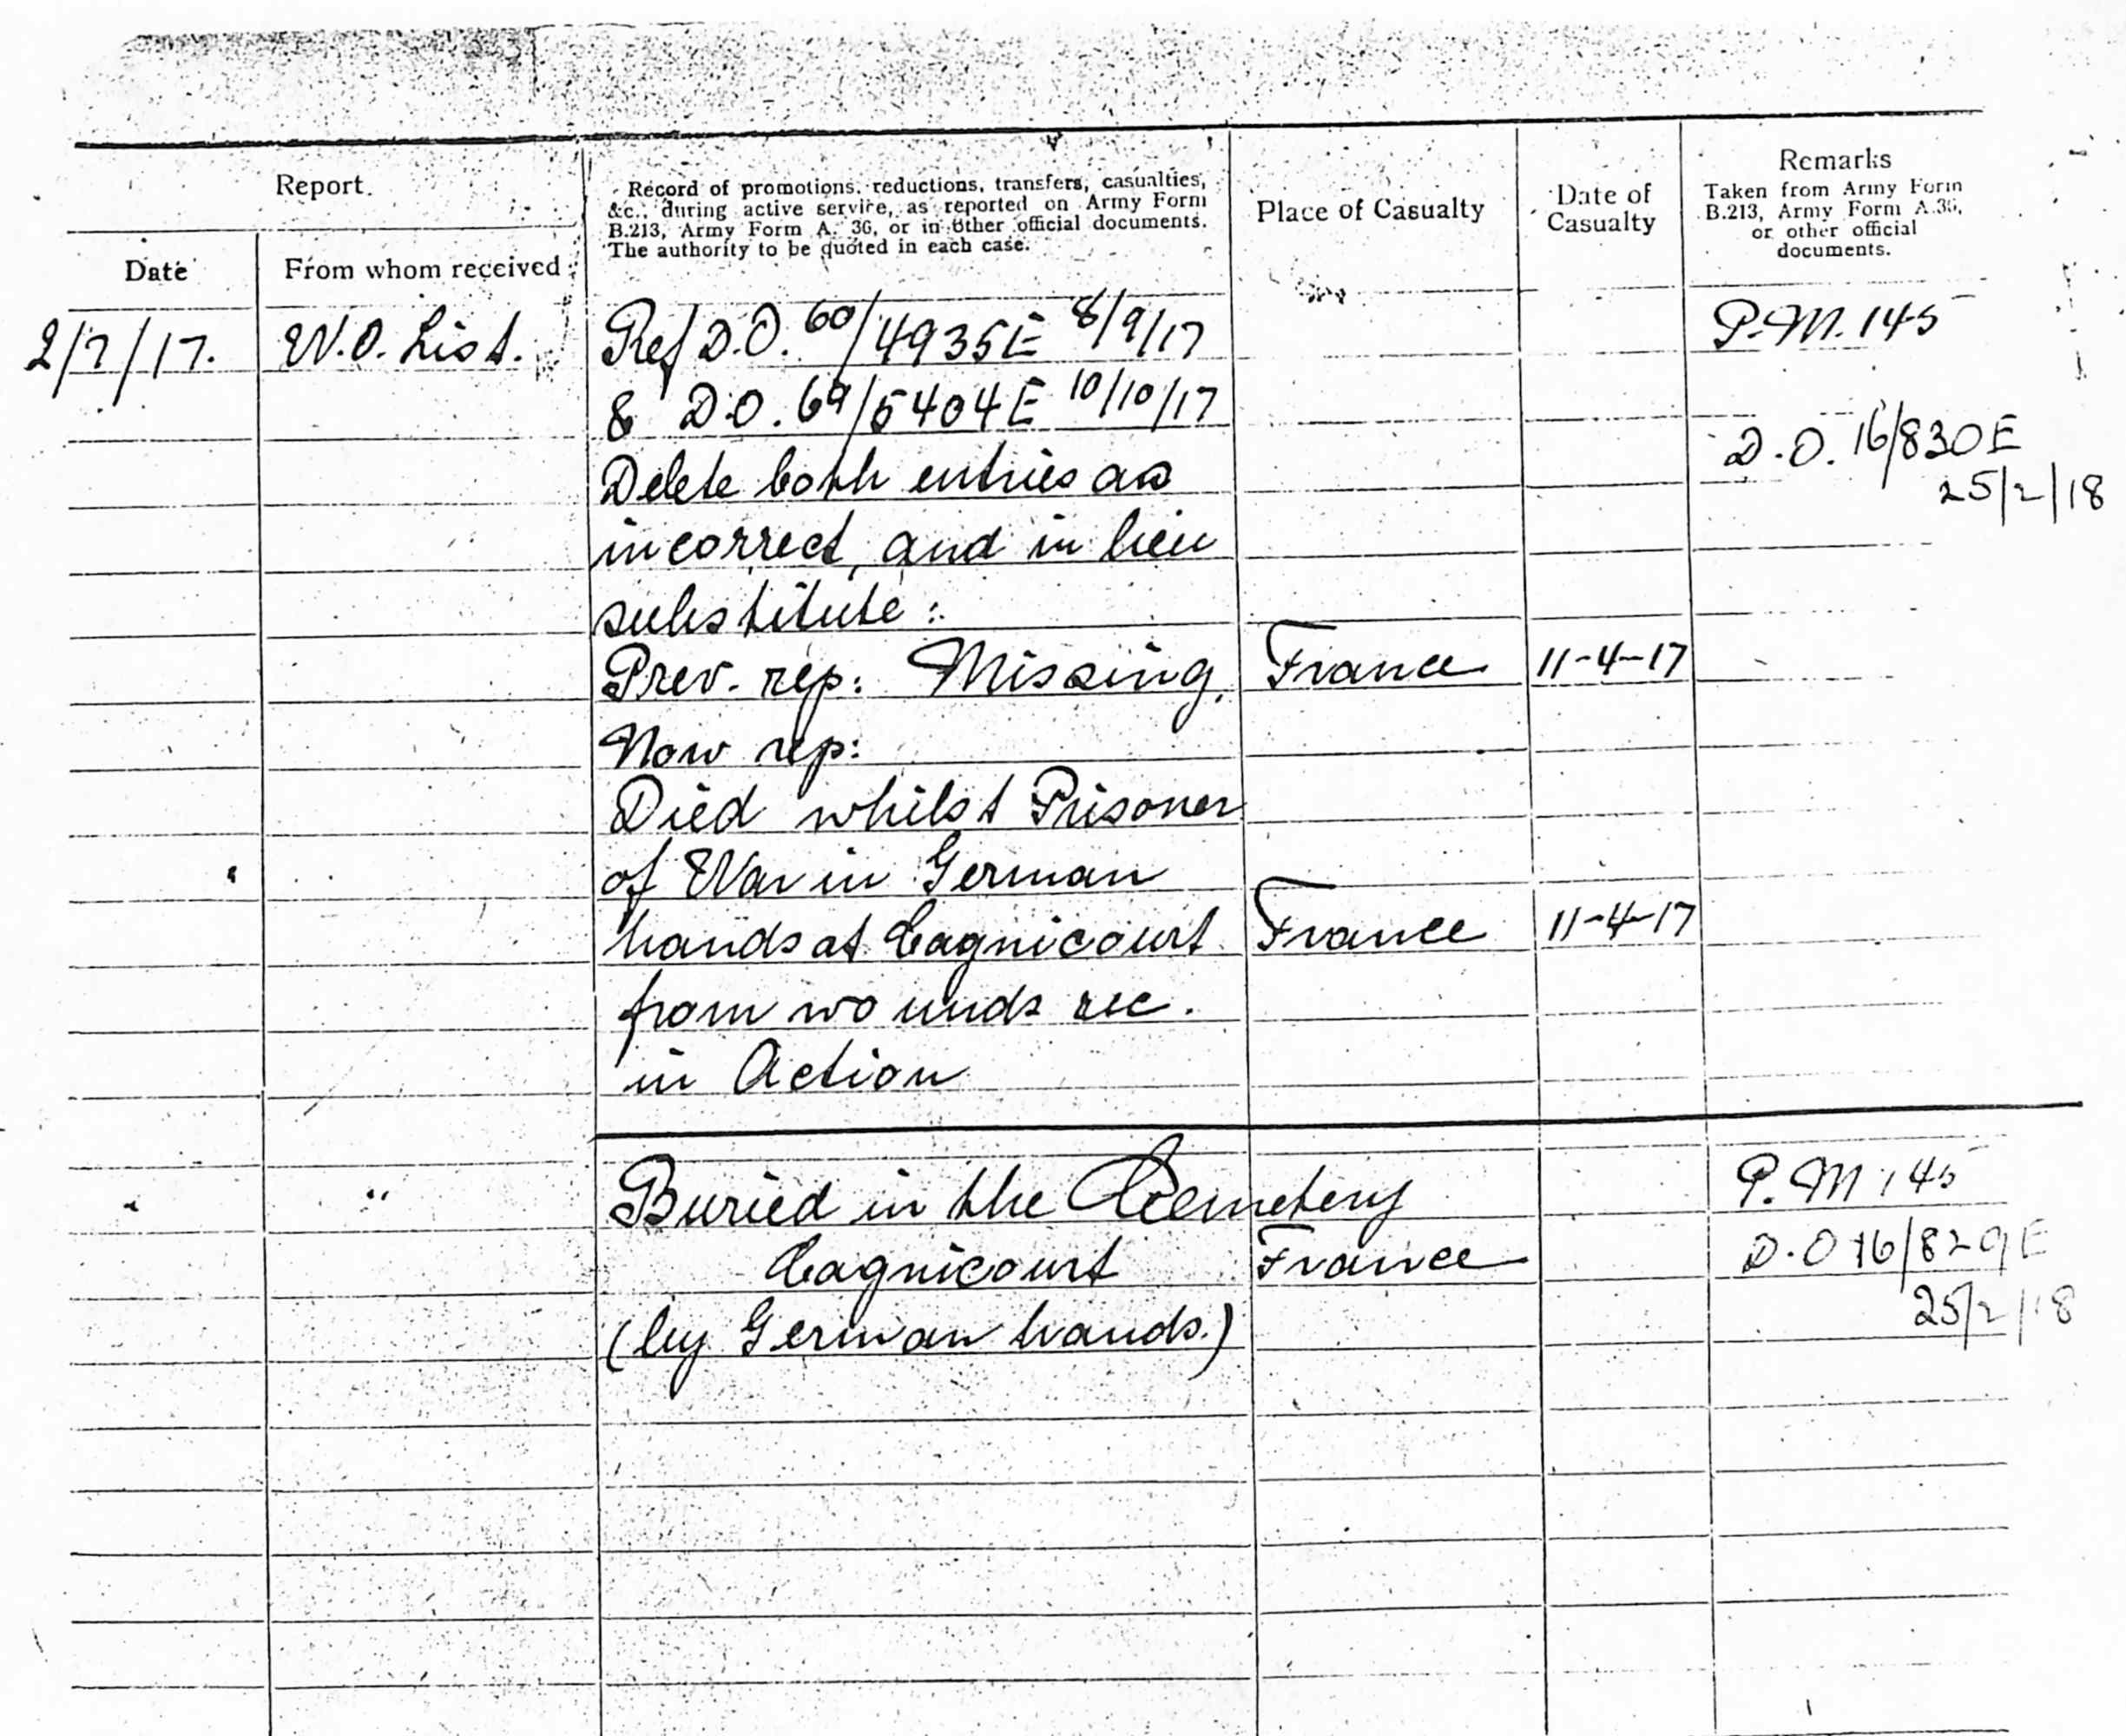 Report.
Date
From whom received
Record of promotions, reductions, transfers, casualties,
&c., during active service, as reported on Army Form
B.213, Army Form A. 36, or in other official documents.
The authority to be quoted in each case.
Place of Casualty
Date of
Casualty
Remarks
Taken from Army Form
B.213, Army Form A.36,
or other official
documents.
2/7/17. W.O. List. Ref D.O. 60/4935E 8/9/17 P.M. 145
& D.O. 69/5404E 10/10/17
D.O. 16/830E
Delete both entries as
25/2/18
incorrect, and in lieu
substitute:
Prev. rep: Missing. France 11-4-17
Now rep:
Died whilst Prisoner
of War in German
hands at Cagnicourt France 11-4-17
from wounds rec.
in Action
" " Buried in the Cemetery P.M 145
Cagnicourt France D.O 16/829E
25/2/18
(by German hands.)